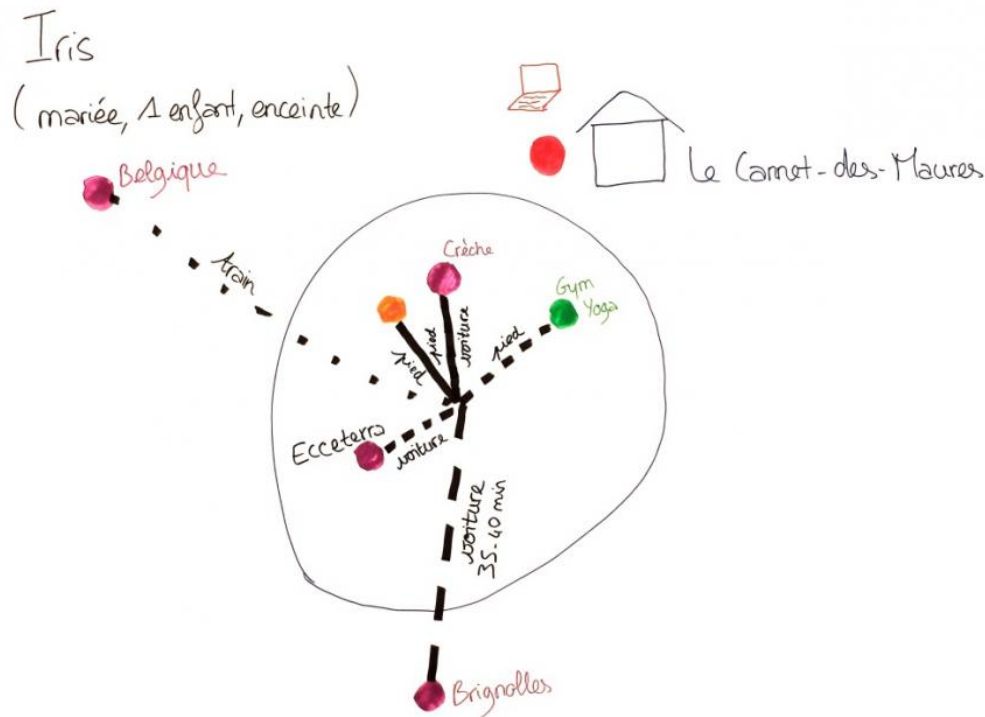 Iris
(mariée, 1 enfant, enceinte)
Belgique
Le Cannet-des-Maures
train
Crèche
Gym
Yoga
pied
pied
voiture
pied
Ecceterra
voiture
voiture
35-40 min
Brignolles